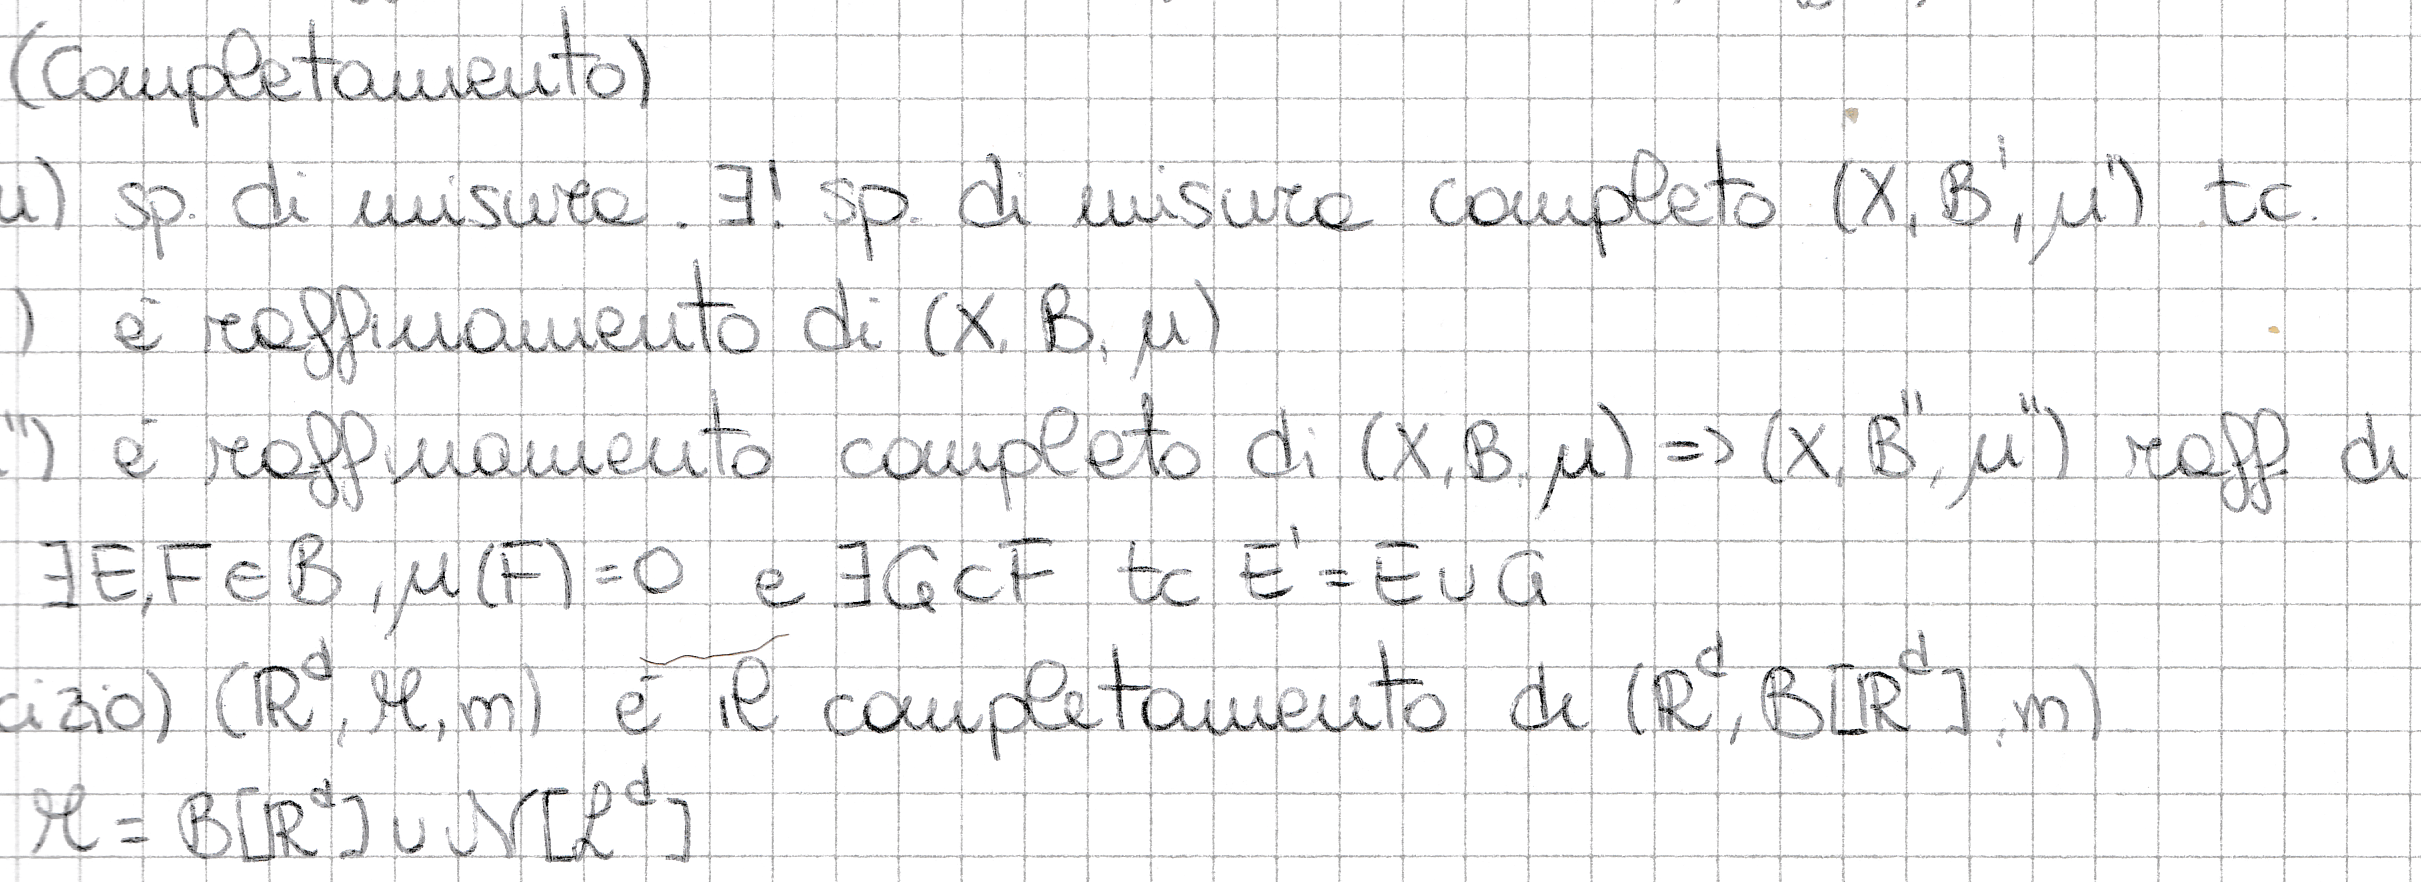 (Completamento)
μ) sp. di misura. ∃! sp. di misura completo (X, B', μ') tc.
) è raffinamento di (X, B, μ)
") è raffinamento completo di (X, B, μ) => (X, B", μ") raff. di
∃E,F∈B, μ(F)=0 e ∃G⊂F tc E'=E∪G
cizio) (ℝᵈ, ℳ, m) è il completamento di (ℝᵈ, B[ℝᵈ], m)
ℳ = B[ℝᵈ] ∪ 𝒩[ℒᵈ]